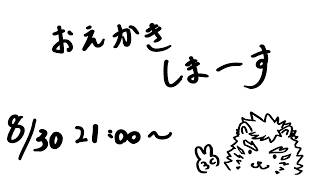 おえかき
しまーす
8/30 21:00〜